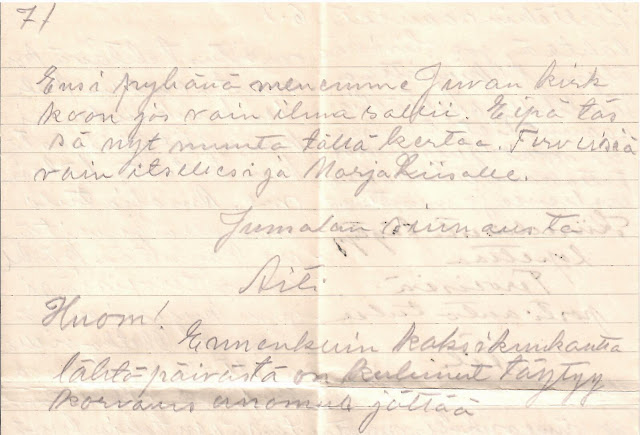 7/
Ensi pyhänä menemme Juvan kirk
koon jos vain ilma sallii. Eipä täs
sä nyt muuta tällä kertaa. Terveisiä
vain itsellesi ja Marja Liisalle.
Jumalan siunausta
Äiti
Huom!
Ennenkuin kaksikuukautta
lähtö-päivästä on kulunut täytyy
korvaus anomus jättää